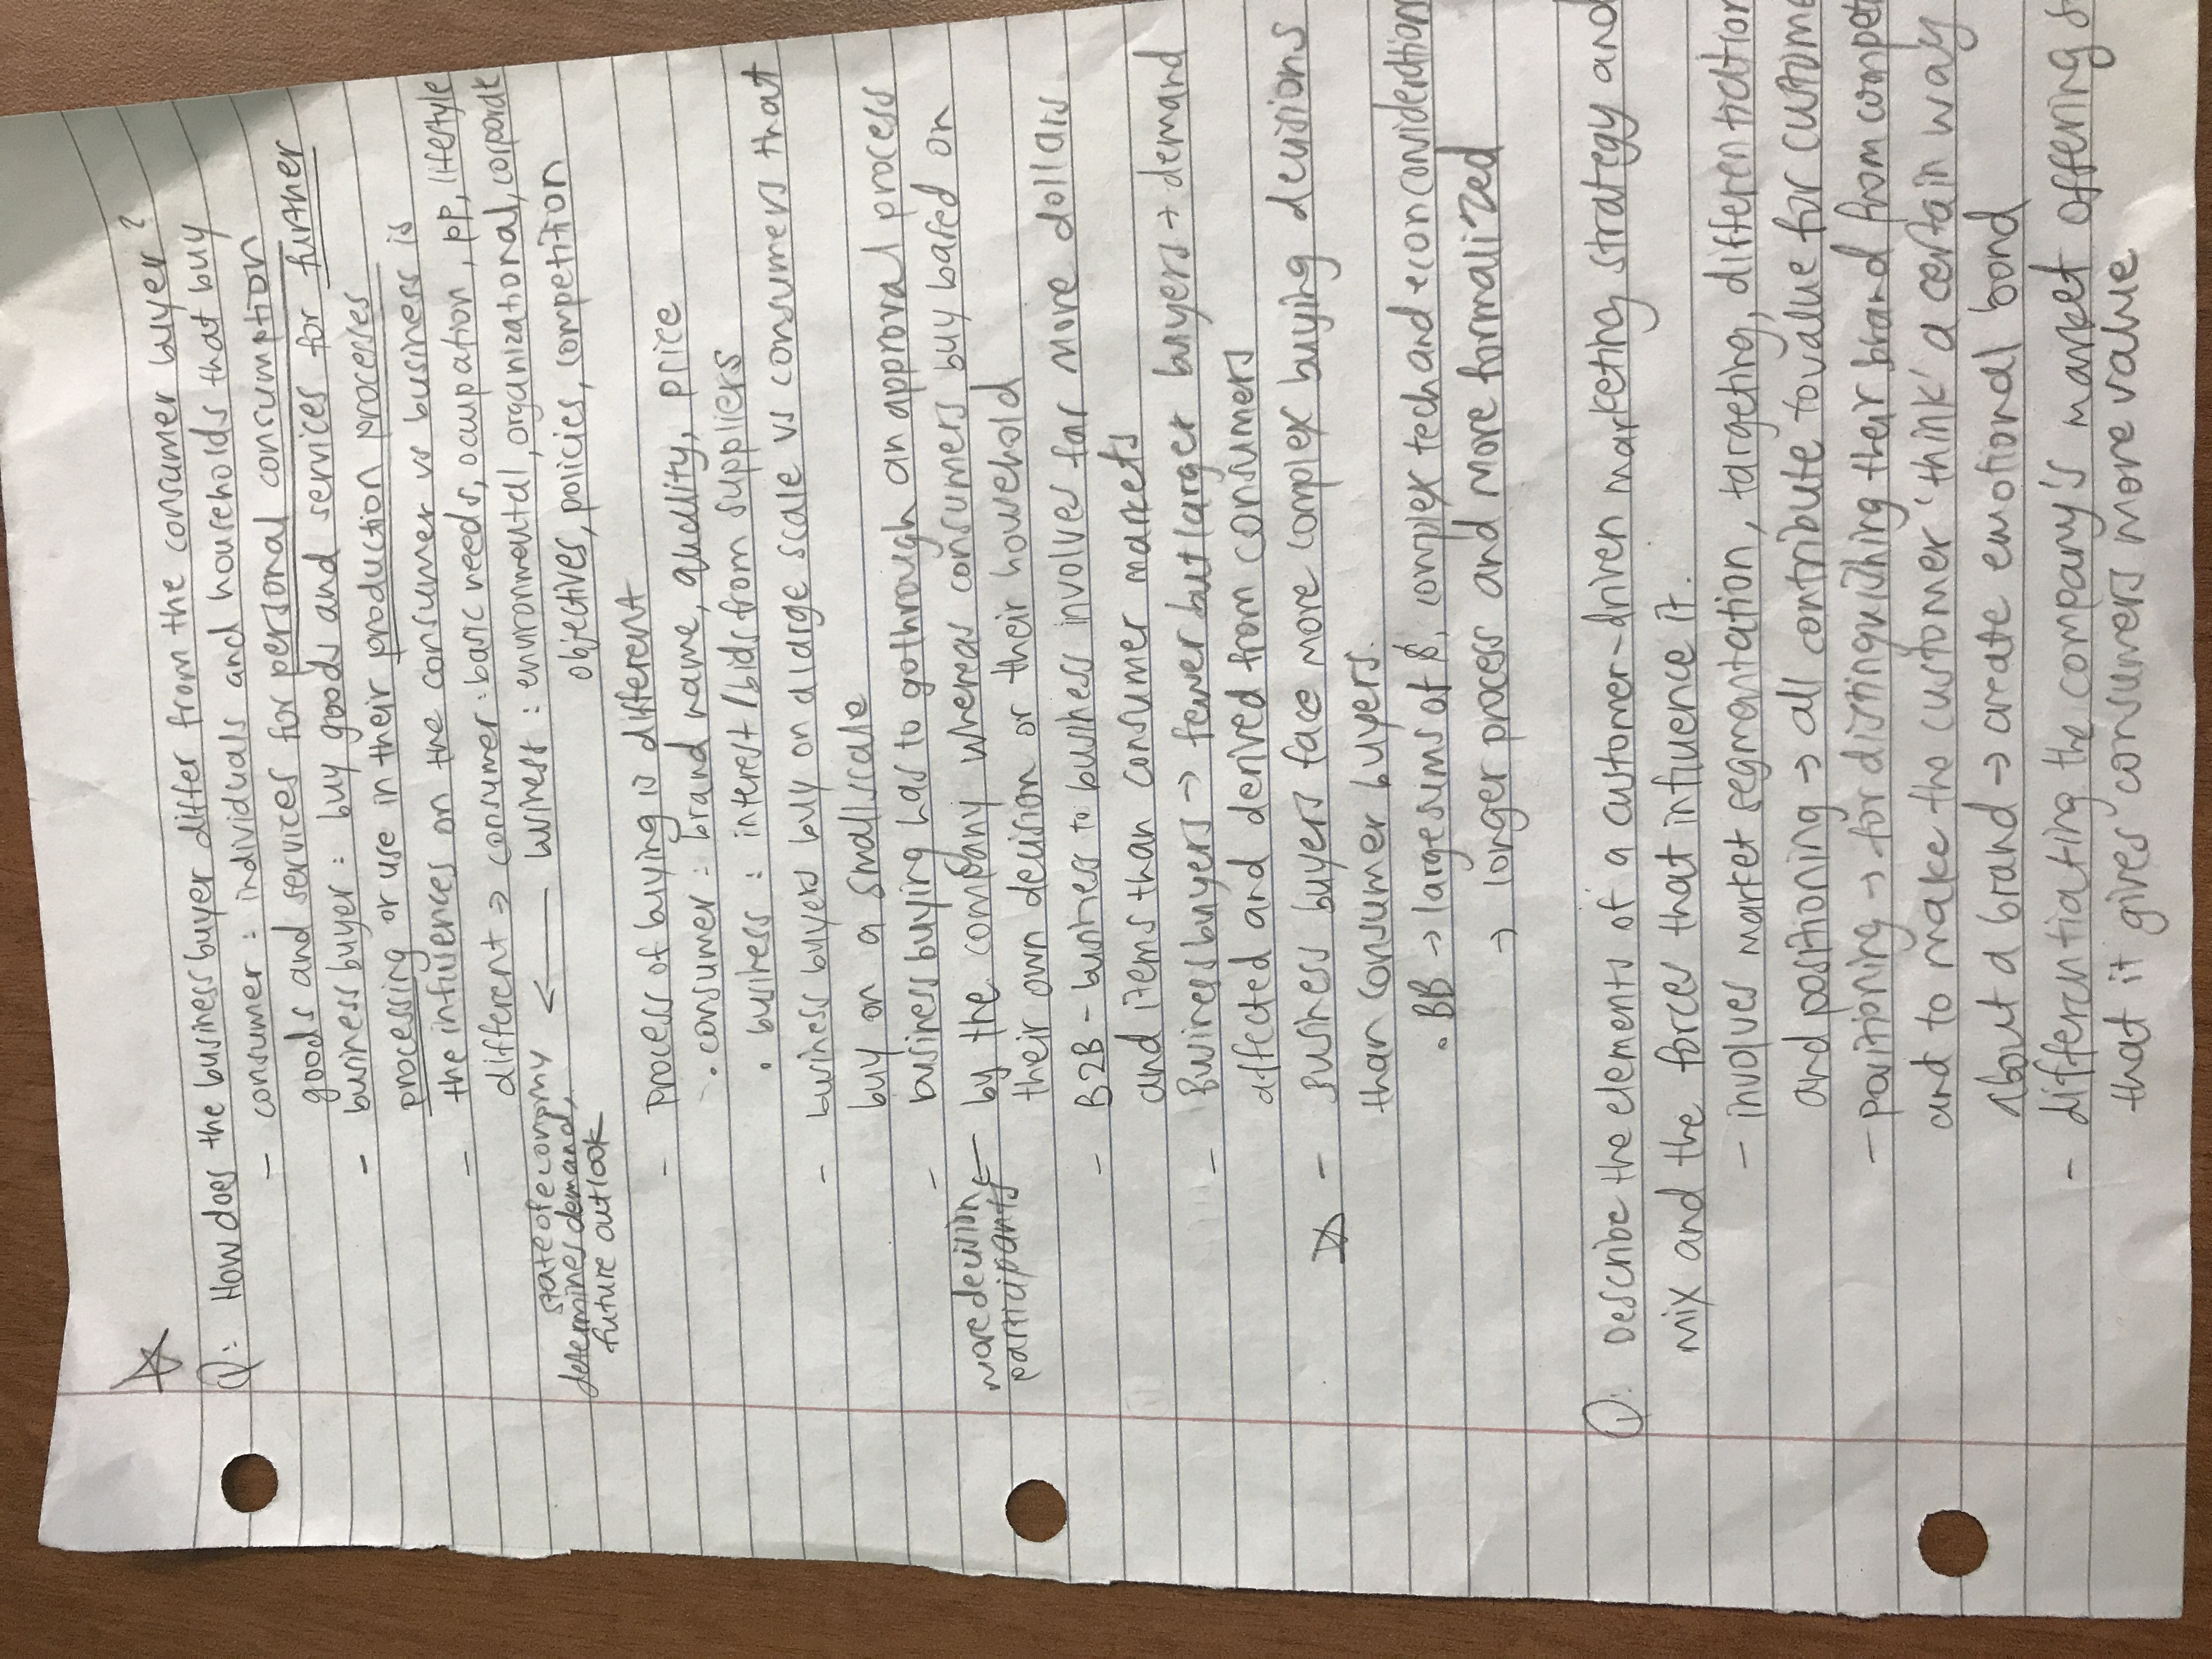 Q: How does the business buyer differ from the consumer buyer?
- consumer: individuals and households that buy
goods and services for personal consumption
- business buyer: buy goods and services for further
processing or use in their production processes
- the influences on the consumer vs business is
different → consumer: basic needs, ocupation, pp, lifestyle
business: environmental, organizational, corporate
objectives, policies, competition
state of economy
determines demand,
future outlook
- Process of buying is different
• consumer: brand name, quality, price
• business: interest/bids from suppliers
- business buyers buy on a large scale vs consumers that
buy on a small scale
- business buying has to go through an approval process
by the company whereas consumers buy based on
their own decision or their household
more decision
participants
- B2B - business to business involves far more dollars
and items than consumer markets
- Business buyers → fewer but larger buyers → demand
affected and derived from consumers
- Business buyers face more complex buying decisions
than consumer buyers.
• BB → large sums of $, complex tech and econ considerations
→ longer process and more formalized
Q: Describe the elements of a customer-driven marketing strategy and
mix and the forces that influence it.
- involves market segmentation, targeting, differentiation
and positioning → all contribute to value for
- positioning → for distinguishing their brand from
and to make the customer 'think' a certain way
about a brand → create emotional bond
- differentiating the company's market offering
that it gives consumers more value